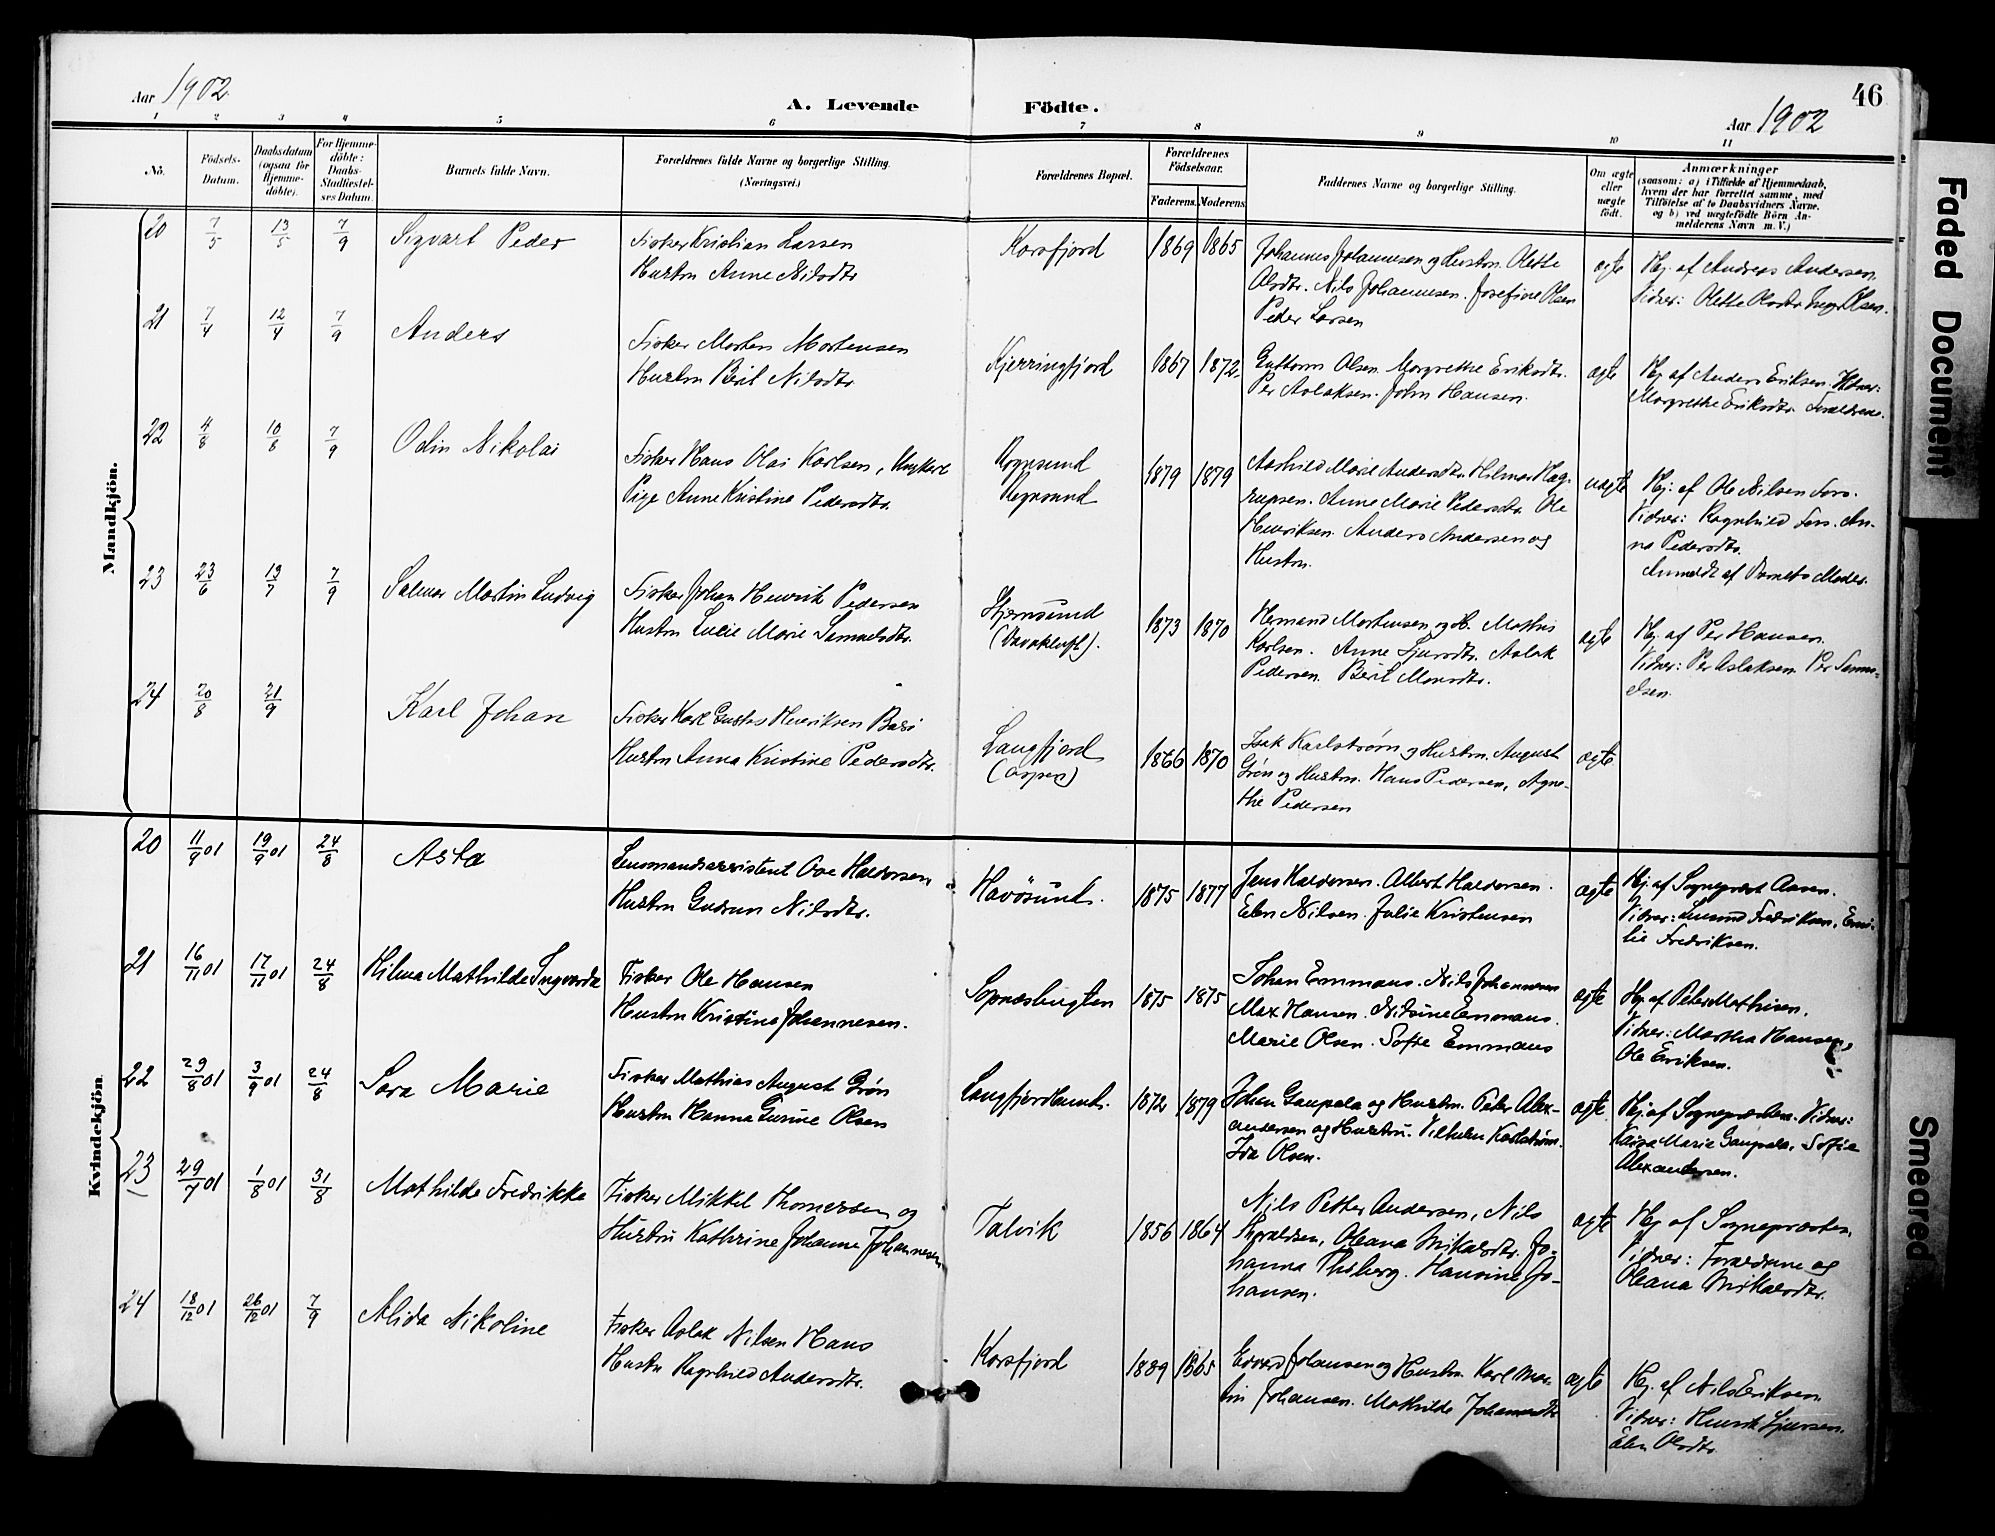 46
Aar 1902
A. Levende Födte.
Aar 1902
1 2 3 4 5 6 7 8 9 10 11
No.
Födsels-Datum.
Daabsdatum (ogsaa för Hjemme-döbte).
For Hjemme-döbte: Daabs-Stadfæstel-ses Datum.
Barnets fulde Navn.
Forældrenes fulde Navne og borgerlige Stilling. (Næringsvei.)
Forældrenes Bopæl.
Forældrenes Födselsaar.
Faderens. Moderens.
Faddernes Navne og borgerlige Stilling.
Om ægte eller uægte födt.
Anmærkninger
(saasom: a) i Tilfælde af Hjemmedaab,
hvem der har forrettet samme, med
Tilföielse af to Daabsvidners Navne,
og b) ved uægtefödte Börn An-
melderens Navn m.V.)
Mandkjön.
20 7/5 13/5 7/9 Sigvart Peder
Fisker Kristian Larsen
Hustru Anne Nilsdtr.
Korsfjord 1869 1865
Johannes Johannesen og Hustru Olette
Olsdtr. Nils Johannesen. Josefine Olsen
Peder Larsen
ægte
Hj. af Andreas Andersen.
Vidner: Olette Olsdtr. Inga Olsen.
21 7/4 12/4 7/9 Anders
Fisker Morten Mortensen
Hustru Berit Nilsdtr.
Kjerringfjord 1867 1872
Guttorm Olsen. Margrethe Eriksdtr.
Per Aslaksen. John Hansen.
ægte
Hj. af Anders Eriksen. Vidner:
Margrethe Eriksdtr. Forældrene.
22 4/8 10/8 7/9 Odin Nikolai
Fisker Hans Olai Karlsen, Ungkarl
Pige Anne Kristine Pedersdtr.
Rognsund
Rognsund
1879 1879
Marie Andersdtr. Hilmar
Anne Marie Pedersdtr. Ole
Henriksen. Anders Andersen og
Hustru.
uægte
Hj. af Ole Nilsen Fors.
Vidner: Ragnhild Fors. An-
na Pedersdtr.
Anmeldt af Barnets Moder.
23 23/6 13/7 7/9 Salmer Martin Ludvig
Fisker Johan Henrik Pedersen
Hustru Lucie Marie Samuelsdtr.
Stjernsund
1873 1870
Hernand Mortensen og H. Mathis
Karlsen. Anne Sjursdtr. Aslak
Pedersen. Berit Monsdtr.
ægte
Hj. af Per Hansen.
Vidner: Per Aslaksen. Per Samu-
elsen.
24 20/8 21/9 Karl Johan
Fisker Karl Gustav Henriksen
Hustru Anna Kristine Pedersdtr.
Langfjord
1866 1870
Isak Karlstrøm og Hustru. August
Grön og Hustru. Hans Pedersen, Agne-
the Pedersen
ægte
Kvindekjön.
20 11/9 01 19/9 01 24/8 Asta
Lensmandsassistent Ove Haldorsen
Hustru Gudrun Nilsdtr.
Havösund. 1875 1877
Jens Haldorsen. Albert Haldorsen.
Elen Nilsen. Julie Kristensen
ægte
Hj. af Sogneprest Aasen.
Vidner: Fredriksen, Emi-
lie Fredriksen.
21 16/11 01 17/11 01 24/8 Hilma Mathilde Ingvarda
Fisker Ole Hansen
Hustru Kristine Johannesen.
Sopnæsbugten 1875 1875
Johan Emmaus. Nils Johannesen
Max Hansen. Nilsine Emmaus.
Marie Olsen. Sofie Emmaus
ægte
Hj. af Peter Mathisen.
Vidner: Martha Hansen,
Ole Eriksen.
22 29/8 01 3/9 01 24/8 Sara Marie
Fisker Mathias August Grön
Hustru Hanna Gurine Olsen
Langfjordbund. 1872 1879
Johan Gaupala og Hustru. Peter Alex-
andersen og Hustru. Vilhelm Karlstrøm.
Ida Olsen.
ægte
Hj. af Sognepresten. Vidner:
Kaisa Marie Gaupala, Sofie
Alexandersen.
23 29/7 01 1/8 01 31/8 Mathilde Fredrikke
Fisker Mikkel Thomassen og
Hustru Kathrine Johanne Johannesen
Talvik 1856 1864
Nils Petter Andersen, Nils
Oleana Mikalsdtr. Jo-
hanna Thiberg. Hansine Jo-
hansen.
ægte
Hj. af Sognepresten.
Vidner: Forældrene og
Oleana Mikalsdtr.
24 18/12 01 26/12 01 7/9 Alida Nikoline
Fisker Aslak Nilsen Haus
Hustru Ragnhild Andersdtr.
Korsfjord 1889 1865
Edvard Johansen og Hustru. Karl Mar-
tin Johansen. Mathilde Johansdtr.
ægte
Hj. af Nils Eriksen.
Vidner: Henrik Sjursen.
Elen Olsdtr.
Faded Document
Smeared